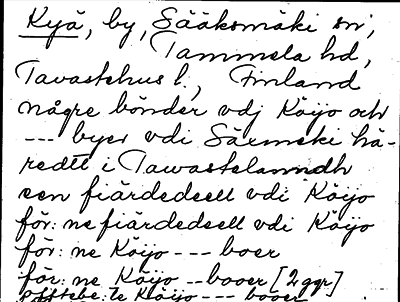 Kyä, by, Sääksmäki sn,
Tammela hd,
Tavastehus l., Finland
någre bönder vdj Käijo och
--- byer vdi Särmeki hä-
redtt i Tawastelanndh
een fiärdedeell vdi Käijo
för: ne fiärdedeell vdi Käijo
för: ne Käijo --- boer
för: ne Käijo -- booer [2 ggr]
Käijo --- booer